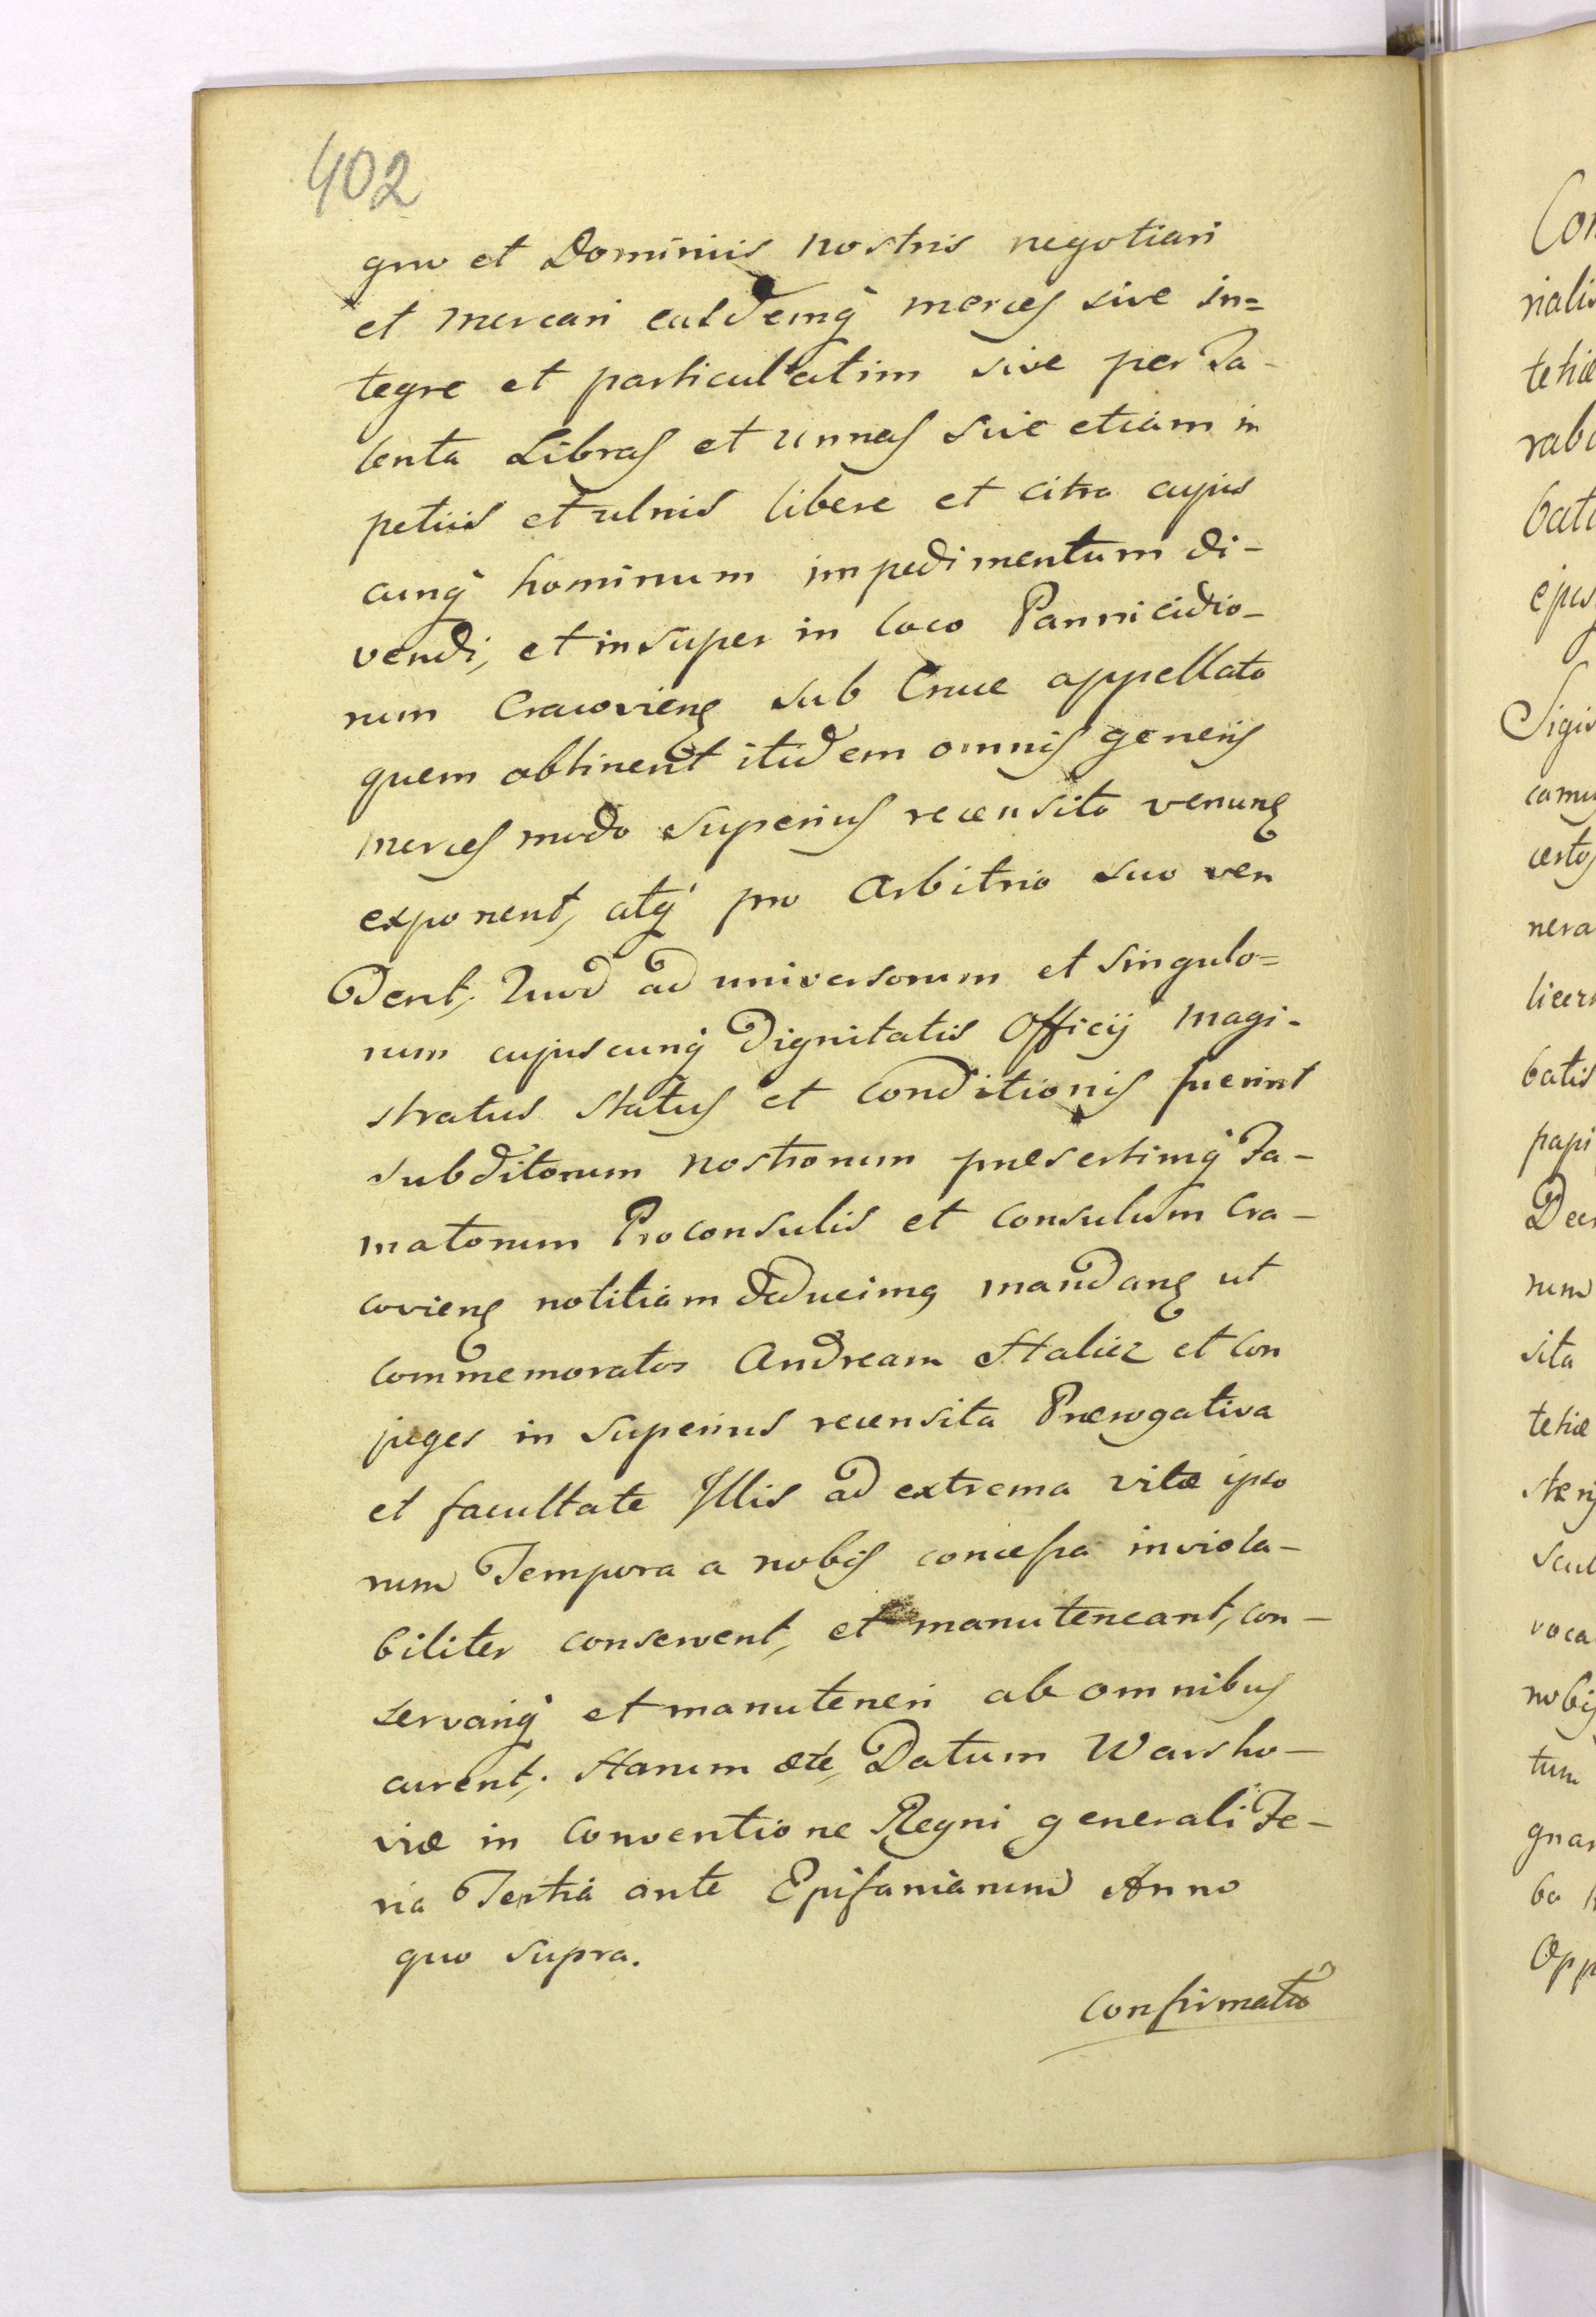 402
gno et Dominiis nostris negotiari
et mercari easdemq̀ merces sive in=
tegre et particulatim sive per Ta-
lenta Libras et Unnas sive etiam in
petiis et ulnis libere et citra cujus
cunq̀ hominum impedimentum di-
vendi, et insuper in loco Pannicidio-
rum Cracovieng sub Cruce appellato
quem obtinent itidem omnis generis
merces modo superius recensito venung
exponent, atq̀ pro Arbitrio suo ven
Dent; Quod ad universorum et singulo=
rum cujuscunq̀ Dignitatis Officij Magi-
stratus status et conditionis fuerint
subditorum nostrorum præsertimq̀ Fa-
matorum Proconsulis et Consulum Cra-
covieng notitiam deducimg mandang ut
commemoratos Andream Italicz et Con
juges in superius recensita Prærogativa
et facultate Illis ad extrema vitæ ipso
rum Tempora a nobis concessa inviola-
biliter conservent, et manuteneant, con-
servariq̀ et manuteneri ab omnibus
curent; Harum etc, Datum Warsho-
viæ in Conventione Regni generali Fe-
ria Tertia ante Epifaniarum Anno
quo supra.
Confirmatio